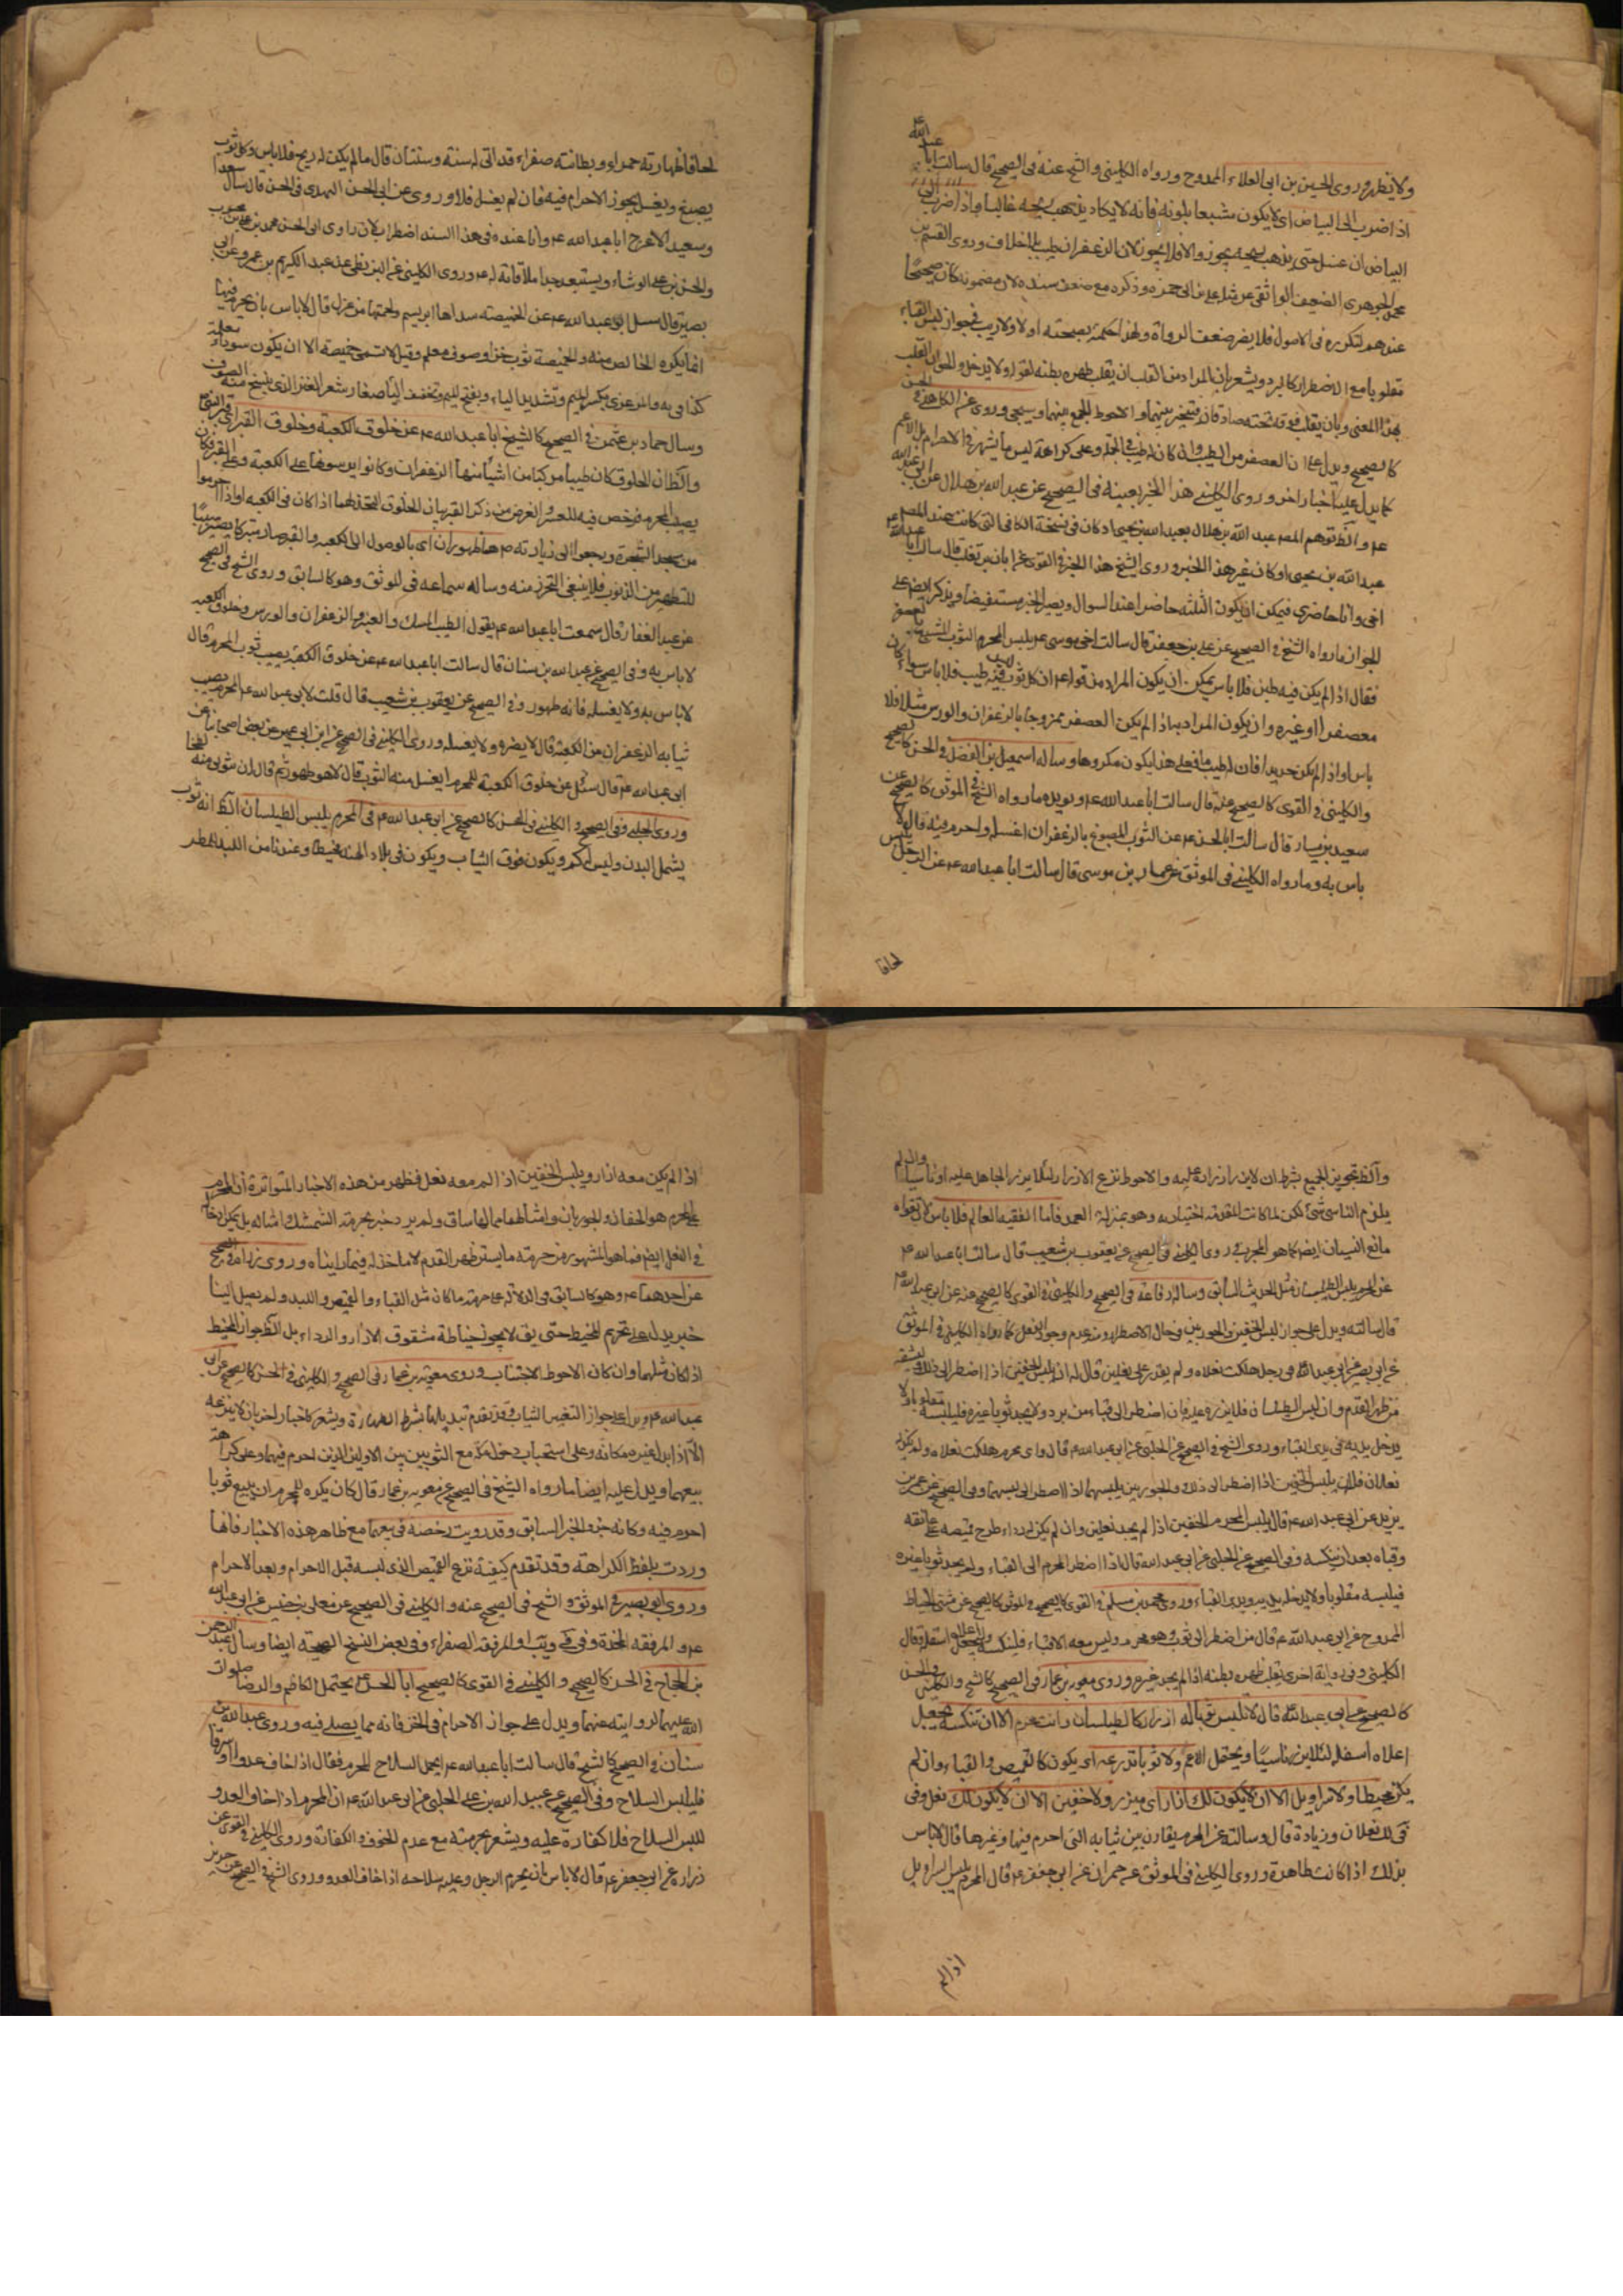 ولا يظهر وروى الحسين بن ابى العلاء الممدوح ورواه الكلينى والشيخ عنه فى الصحيح قال سالت ابا عبد الله ع
اذا ضرب الى البياض اى لا يكون مشبعا بلونه فانه لا يكاد يذهب ريحه غالبا واذا ضرب الى
البياض ان غسل حتى يذهب ريحه يجوز والا فلا يجوز لان الزعفران طيب بلا خلاف وروى القسم بن
محمد الجوهرى الضعيف الواقفى عن على بن ابى حمزه وذكره مع ضعف سنده لان مضمونه كان صحيحا
عندهم لتكرره فى الاصول فلا يضر ضعف الرواة ولهذا حكمنا بصحته اولا ولا ريب فى جواز لبس القباء
مقلوبا مع الاضطرار كالبرد ويشعر بان المراد من القلب ان يقلب ظهره بطنه لقوله ولا يدخل
بهذا المعنى وبان يقلب فوقه تحته صادقان فيتخير بينهما والاحوط الجمع بينهما وسيجى وروى عن الكاهلى فى الحسن
كالصحيح ويدل على ان العصفر من الطيب وان كان لا طيب فى الجملة وعلى كراهة لبس ما يشهر فى الاحرام
كما يدل عليه اخبار اخر وروى الكلينى هذا الخبر بعينه فى الصحيح عن عبد الله بن هلال عن ابى عبد الله
ع والظ توهم المصـ عبد الله بن هلال بعبد الله بن يحيى اذ كان فى نسخة الكافى التى كانت عند المصـ
عبد الله بن يحيى او كان غير هذا الخبر وروى الشيخ هذا الخبر فى القوى عن ابان بن تغلب قال سال ابا عبد الله ع
اخى وانا حاضر فيمكن ان يكون الثلثه حاضرا عند السوال ويصير الخبر مستفيضا ويذكر ايضا على
الجواز ما رواه الشيخ فى الصحيح عن على بن جعفر قال سالت اخى موسى ع يلبس المحرم الثوب المشبع بالعصفر
فقال اذا لم يكن فيه طيب فلا باس يمكن ان يكون المراد من قوله ع ان كل ثوب ليس فيه طيب فلا باس سواء كان
معصفرا او غيره وان يكون المراد به اذا لم يكن العصفر ممزوجا بالزعفران والورس مثلا فلا
باس او اذا لم يكن جديدا فان له طيب ما فعلى هذا يكون مكروها وساله اسمعيل بن الفضل فى الحسن كالصحيح
والكلينى فى القوى كالصحيح عنه قال سالت ابا عبد الله ع ويويده ما رواه الشيخ فى الموثق كالصحيح عن
سعيد بن يسار قال سالت ابا الحسن ع عن الثوب المصبوغ بالزعفران اغسله واحرم فيه قال لا
باس به وما رواه الكلينى فى الموثق عن عمار بن موسى قال سالت ابا عبد الله ع عن الرجل يلبس
لحافا
لحافا ظهارته حمراء وبطانته صفراء قد اتى له سنة وسنتان قال ما لم يكن له ريح فلا باس وكل ثوب
يصبغ ويغسل يجوز الاحرام فيه فان لم يغسل فلا وروى عن ابى الحسن النهدى فى الحسن قال سال سعيد
وسعيد الاعرج ابا عبد الله ع وانا عنده فى هذا السند اضطراب لان راوى ابى الحسن محمد بن على بن محبوب
والحسن بن على الوشاء ويستبعد جدا ملاقاته له ع وروى الكلينى عن البزنطى عن عبد الكريم بن عمرو عن ابى
بصير قال سئل ابو عبد الله ع عن الخميصه سداها ابريسم ولحمتها من غزل قال لا باس بان يحرم فيها
انما يكره الخالص منه والخميصة ثوب خز او صوف معلم وقيل لا تسمى خميصة الا ان يكون سوداء معلمة
كذا فى يه والمرعزى بكسر الميم وتشديد الياء وبفتح الميم وتخفيف الياء صغار شعر العنز الذى ينسج منه الصوف
وسال حماد بن عثمن فى الصحيح كالشيخ ابا عبد الله ع عن خلوق الكعبة وخلوق القبر
والظ ان الخلوق كان طيبا مركبا من اشياء منها الزعفران وكانوا يرسونها على الكعبة وعلى القبر فكان
يصيب المحرم فرخص فيه للعسر والغرض من ذكر القبر بيان الخلوق المتخذ لهما اذا كان فى الكعبه او اذا احرموا
من مسجد الشجرة ويرجعوا الى زيارته ص هما طهوران اى بالوصول الى الكعبه والقبر صار متبركا
للتطهير من الذنوب فلا ينبغى التحرز منه وساله سماعه فى الموثق وهو كالسابق وروى الشيخ فى الصحيح
عن عبد الغفار قال سمعت ابا عبد الله ع يقول الطيب المسك والعنبر والزعفران والورس وخلوق الكعبه
لا باس به وفى الصحيح عن عبد الله بن سنان قال سالت ابا عبد الله ع عن خلوق الكعبة يصيب ثوب المحرم قال
لا باس به ولا يغسله فانه طهور وفى الصحيح عن يعقوب بن شعيب قال قلت لابى عبد الله ع المحرم يصيب
ثيابه الزعفران من الكعبة قال لا يضره ولا يغسله وروى الكلينى فى الصحيح عن ابن ابى عمير عن بعض اصحابنا عن
ابى عبد الله ع قال سئل عن خلوق الكعبة للمحرم ايغسل منه الثوب قال لا هو طهور ثم قال ان بثوبى منه لطخا
وروى الحلبى وفى الصحيح والكلينى فى الحسن كالصحيح عن ابى عبد الله ع فى المحرم يلبس الطيلسان الظ انه ثوب
يشمل البدن وليس له كم ويكون فوق الثياب ويكون فى بلاد الهند مخيطا وعندنا من اللبد للمطر
والظ تجويز الجميع بشرط ان لا يزر ازراره عليه والاحوط نزع الازرار لئلا يزر الجاهل عليه او ناسيا وان لم
يلزم الناسى شئ لكن لما كانت المقدمة اختياريه وهو بمنزلة العمد فاما الفقيه العالم فلا باس لان تقواه
مانع النسيان ايضا كما هو المجرب وروى الكلينى فى الصحيح عن يعقوب بن شعيب قال سالت ابا عبد الله ع
عن المحرم يلبس الطيلسان مثل الحديث السابق وساله رفاعة فى الصحيح والكلينى فى القوى كالصحيح عنه عن ابى عبد الله ع
قال سالته ويدل على جواز لبس الخفين والجوربين فى حال الاضطرار وعدم وجود النعل كما رواه الكلينى فى الموثق
عن ابى بصير عن ابى عبد الله ع فى رجل هلكت نعلاه ولم يقدر على نعلين قال له ان يلبس الخفين اذا اضطر الى ذلك ويشقه
من ظهر القدم وان لبس الطيلسان فلا يزره عليه فان اضطر الى قباء من برد ولا يجد ثوبا غيره فليلبسه مقلوبا ولا
يدخل يديه فى يدى القباء وروى الشيخ فى الصحيح عن الحلبى عن ابى عبد الله ع قال واى محرم هلكت نعلاه ولم يكن له
نعلان فله ان يلبس الخفين اذا اضطر الى ذلك والجوربين يلبسهما اذا اضطر الى لبسهما وفى الصحيح عن عمر بن
يزيد عن ابى عبد الله ع قال يلبس المحرم الخفين اذا لم يجد نعلين وان لم يكن له رداء طرح قميصه على عاتقه
وقباه بعد ان ينكسه وفى الصحيح عن الحلبى عن ابى عبد الله قال اذا اضطر المحرم الى القباء ولم يجد ثوبا غيره
فيلبسه مقلوبا ولا يدخل يديه فى يدى القباء وروى محمد بن مسلم فى القوى كالصحيح والموثق كالصحيح عن مثنى الحناط
الممدوح عن ابى عبد الله ع قال من اضطر الى ثوب وهو محرم وليس معه الا قباء فلينكسه وليجعل اعلاه اسفله قال
الكلينى وفى رواية اخرى يقلب ظهره بطنه اذا لم يجد غيره وروى معوية بن عمار فى الصحيح كالشيخ والكلينى فى الحسن
كالصحيح عن ابى عبد الله ع قال لا تلبس ثوبا له ازرار كالطيلسان وانت محرم الا ان تنكسه تجعل
اعلاه اسفله لئلا يزر ناسيا ويحتمل الاعم ولا ثوبا تدرعه اى يكون كالقميص والقباء وان لم
يكن مخيطا ولا سراويل الا ان لا يكون لك ازار اى ميزر ولا خفين الا ان لا يكون لك نعل وفى
فى لك نعلان وزيادة قال وسالته عن المحرم يقارن بين ثيابه التى احرم فيها وغيرها قال لا باس
بذلك اذا كانت طاهرة وروى الكلينى فى الموثق عن حمران عن ابى جعفر ع قال المحرم يلبس السراويل
اذا لم
اذا لم يكن معه ازار ويلبس الخفين اذا لم يكن معه نعل فظهر من هذه الاخبار المتواترة ان المحرم
على المحرم هو الخفان والجوربان وامثالهما مما لها ساق ولم يرد خبر بحرمة الشمشك وامثاله بل يمكن دخاله
فى النعل ايضا فما هو المشهور من حرمة ما يستر ظهر القدم لا ماخذ له فيما رايناه وروى زرارة فى الصحيح
عن احدهما ع وهو كالسابق فى الدلالة على حرمة ما كان مثل القباء والقميص واللبد ولم يصل الينا
خبر يدل على تحريم المخيط حتى يقال لا يجوز خياطة شقوق الازار والرداء بل الظ جواز المخيط
اذا كان مثلهما وان كان الاحوط الاجتناب وروى معوية بن عمار فى الصحيح والكلينى فى الحسن كالصحيح عن ابى
عبد الله ع ويدل على جواز التغيير الثياب وقد تقدم تبديلها بشرط الطهارة ويشعر كاخبار اخر بان لا ينزعه
الا اذا بدل غيره مكانه وعلى استحباب دخول مكة مع الثوبين الاولين الذين احرم فيهما وعلى كراهة
بيعهما ويدل عليه ايضا ما رواه الشيخ فى الصحيح عن معوية بن عمار قال كان يكره للمحرم ان يبيع ثوبا
احرم فيه وكانه جزء الخبر السابق وقد رويت رخصه فى بيعها مع ظاهر هذه الاخبار فانها
وردت بلفظ الكراهة وقد تقدم كيفية نزع القميص الذى لبسه قبل الاحرام وبعد الاحرام
وروى ابو بصير فى الموثق والشيخ فى الصحيح عنه والكلينى فى الصحيح عن معلى بن خنيس عن ابى عبد الله
ع والمرفقه المخدة وفى فى ويب والمرفقه الصفراء وفى بعض النسخ الصحيحة ايضا وسال عبد الرحمن
بن الحجاج فى الحسن كالصحيح والكلينى فى القوى كالصحيح ابا الحسن ع يحتمل الكاظم والرضا صلوات
الله عليهما لروايته عنهما ويدل على جواز الاحرام فى الخز فانه مما يصلى فيه وروى عبد الله بن
سنان فى الصحيح كالشيخ قال سالت ابا عبد الله ع ايحمل السلاح المحرم فقال اذا خاف عدوا او سرقا
فليلبس السلاح وفى الصحيح عن عبيد الله بن على الحلبى عن ابى عبد الله ع ان المحرم اذا خاف العدو
للبس السلاح فلا كفارة عليه ويشعر بحرمته مع عدم الخوف والكفارة وروى الكلينى فى القوى عن
زرارة عن ابى جعفر ع قال لا باس بان يحرم الرجل وعليه سلاحه اذا خاف العدو وروى الشيخ فى الصحيح عن حريز